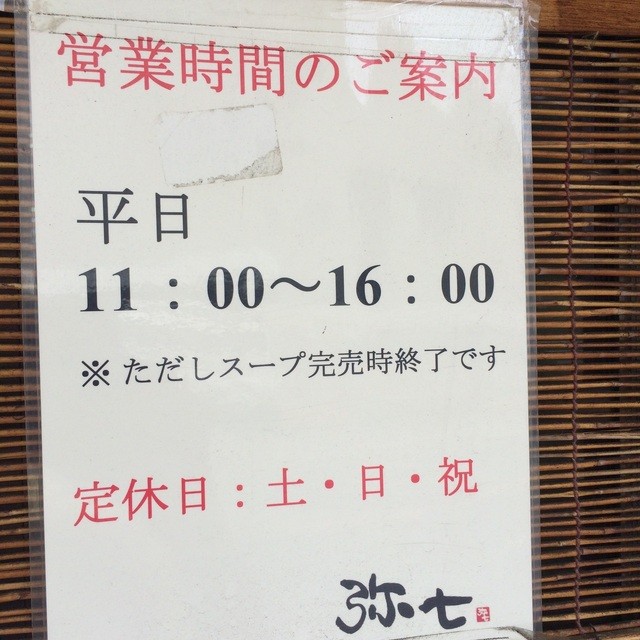 営業時間のご案内
平日
11：00～16：00
※ ただしスープ完売時終了です
定休日：土・日・祝
弥七